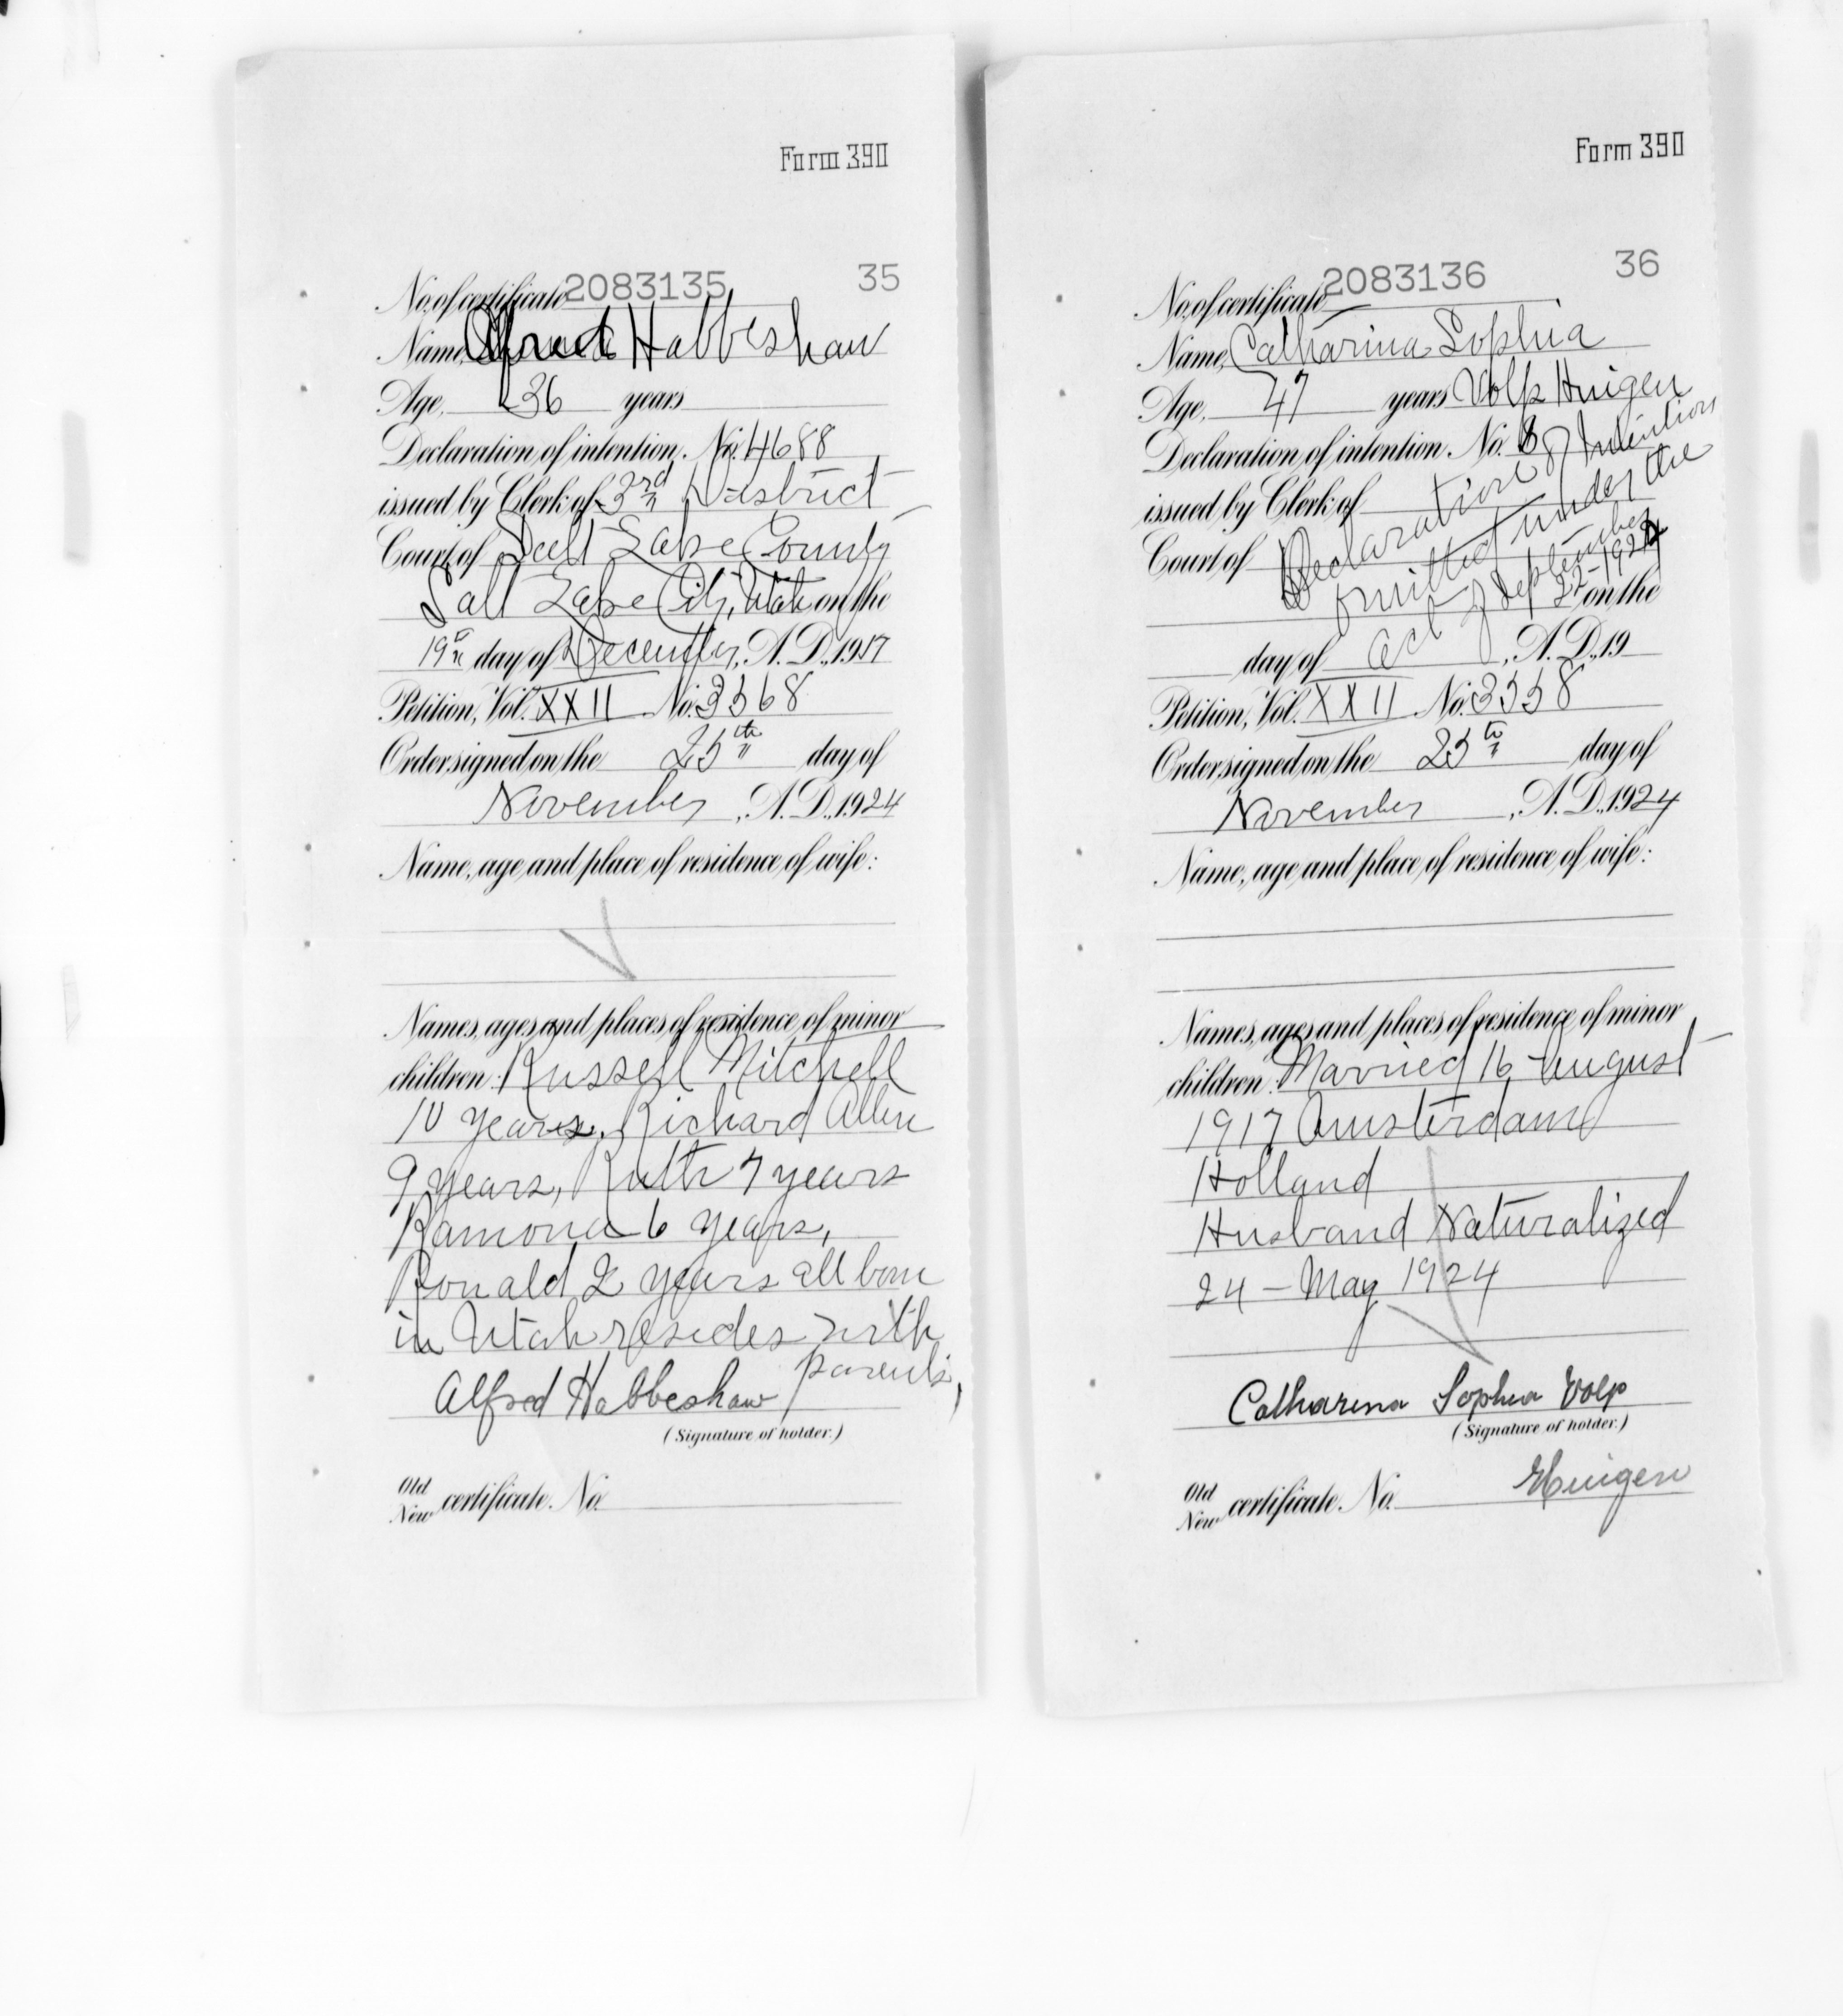 Form 390
No. of certificate 2083135 35
Name, Alfred Habbeshaw
Age, 36 years
Declaration of intention, No. 4688
issued by Clerk of 3rd District
Court of Salt Lake County
Salt Lake City, Utah on the
19th day of December, A. D., 1917
Petition, Vol. XXII No. 3568
Order signed on the 25th day of
November, A. D., 1924
Name, age and place of residence of wife:
Names, ages and places of residence of minor
children: Russell Mitchell
10 years, Richard Allen
9 years, Ruth 7 years
Ramona 6 years,
Ronald 2 years all born
in Utah resides with
parents,
Alfred Habbeshaw
(Signature of holder.)
Old
New certificate No.
Form 390
No. of certificate 2083136 36
Name, Catharina Sophia
Age, 47 years Volp Huigen
Declaration of intention, No.
issued by Clerk of
Court of
Declaration of Intention
omitted under the
act of September
22-1922
on the
day of , A. D., 19
Petition, Vol. XXII No. 3558
Order signed on the 25th day of
November, A. D., 1924
Name, age and place of residence of wife:
Names, ages and places of residence of minor
children: Married 16 August
1917 Amsterdam
Holland
Husband Naturalized
24 - May 1924
Catharina Sophia Volp
(Signature of holder.)
Huigen
Old
New certificate No.